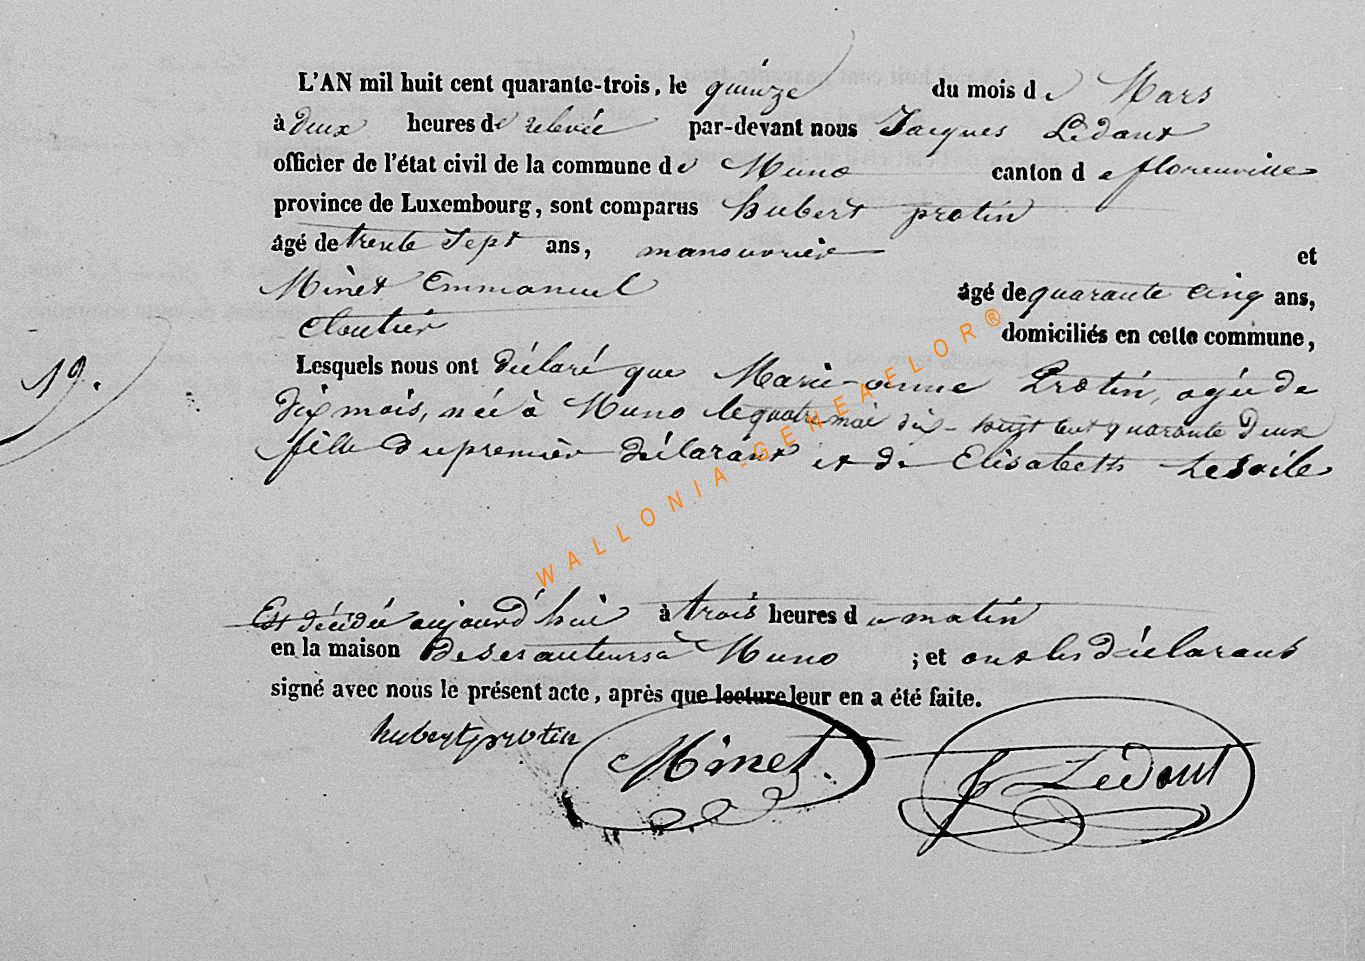 L'AN mil huit cent quarante-trois, le quinze du mois de Mars
à deux heures de relevée par-devant nous Jacques Ledant
officier de l'état civil de la commune de Muno canton de florenville
province de Luxembourg, sont comparus hubert protin
âgé de trente Sept ans, manouvrier et
Minet Emmanuel âgé de quarante Cinq ans,
Cloutier domiciliés en cette commune,
19.
Lesquels nous ont déclaré que Marie-anne Protin, agée de
Dix mois, née à Muno le quatre mai dix-huit Cent quarante Deux
fille du premier Déclarant et de Elisabeth Lesoile
Est décédée aujourd'hui à trois heures du matin
en la maison De ses auteurs à Muno ; et ont les déclarants
signé avec nous le présent acte, après que lecture leur en a été faite.
hubert protin Minet. J Ledant
WALLONIA-GENEAFLOR®